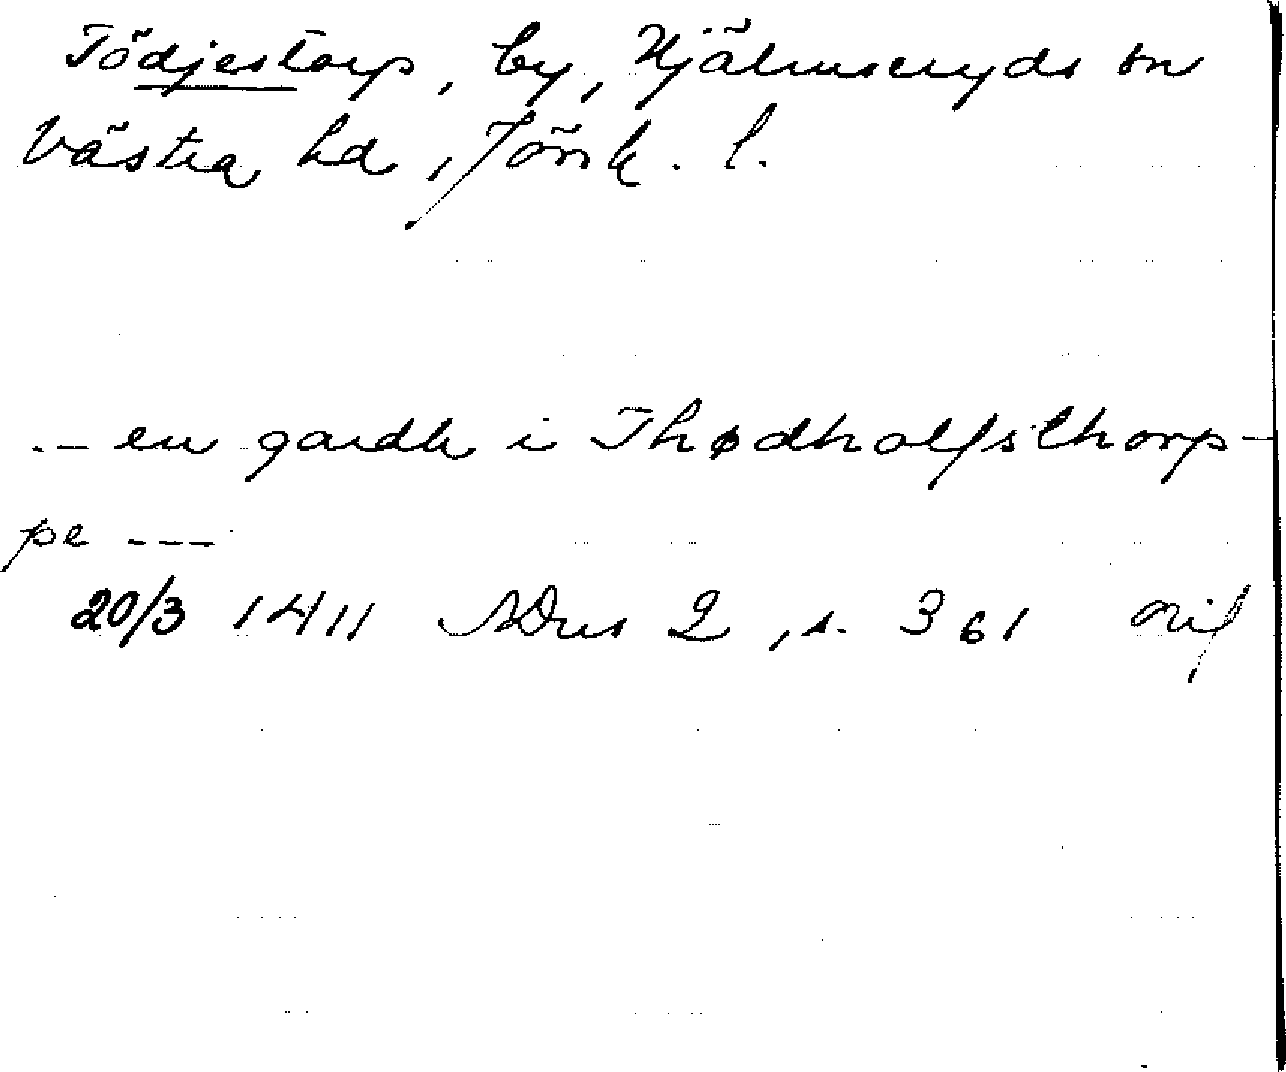 Tödjestorp, by, Hjälmseryds sn
Västra hd, Jönk. l.
-- en gardh i Thødholfsthorp-
pe ---
20/3 1411 SDns 2, s. 361 orig